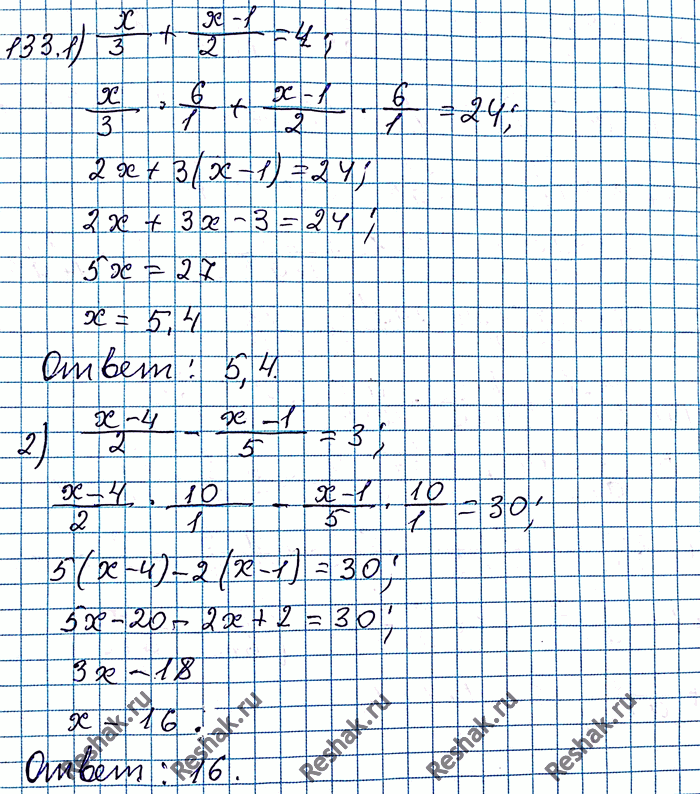 133.1) x/3 + x-1/2 = 4;
x/3 · 6/1 + x-1/2 · 6/1 = 24;
2x + 3(x-1) = 24;
2x + 3x - 3 = 24;
5x = 27
x = 5,4
Ответ: 5,4.
2) x-4/2 - x-1/5 = 3;
x-4/2 · 10/1 - x-1/5 · 10/1 = 30;
5(x-4) - 2(x-1) = 30;
5x - 20 - 2x + 2 = 30;
3x - 18
x - 16.
Ответ: 16.
Reshak.ru Reshak.ru Reshak.ru Reshak.ru Reshak.ru